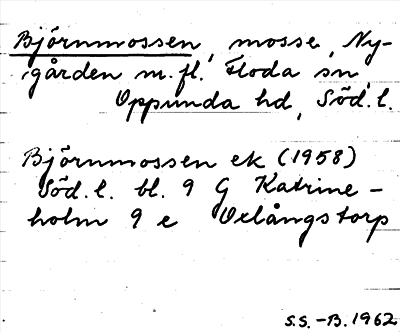 Björnmossen, mosse, Ny-
gården m.fl. Floda sn,
Oppunda hd, Söd.l.
Björnmossen ek (1958)
Söd.l. bl. 9 G Katrine-
holm 9 e Valångstorp
S.S. -B. 1962